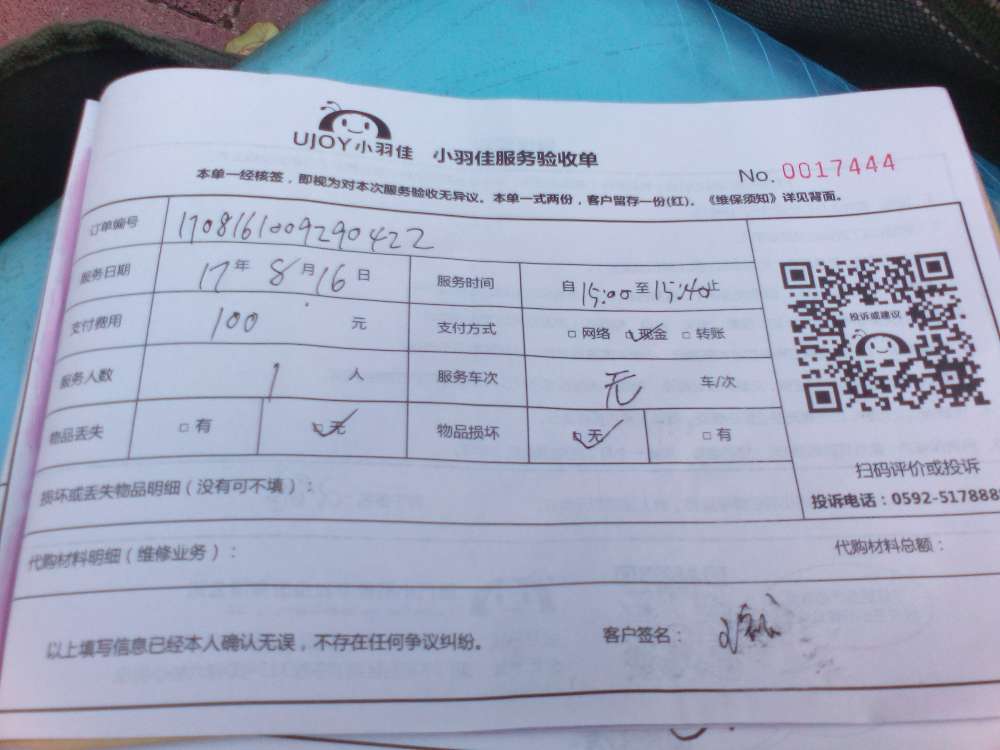 UJOY小羽佳 小羽佳服务验收单
No. 0017444
本单一经核签，即视为对本次服务验收无异议。本单一式两份，客户留存一份(红)。《维保须知》详见背面。
订单编号 1708161009290422
服务日期 17年 8月16日 服务时间 自15:00至15:40止
支付费用 100 元 支付方式 □网络 ☑现金 □转账
服务人数 1 人 服务车次 无 车/次
物品丢失 □有 ☑无 物品损坏 ☑无 □有
投诉或建议
扫码评价或投诉
投诉电话：0592-517888
损坏或丢失物品明细（没有可不填）：
代购材料明细（维修业务）： 代购材料总额：
以上填写信息已经本人确认无误，不存在任何争议纠纷。 客户签名：